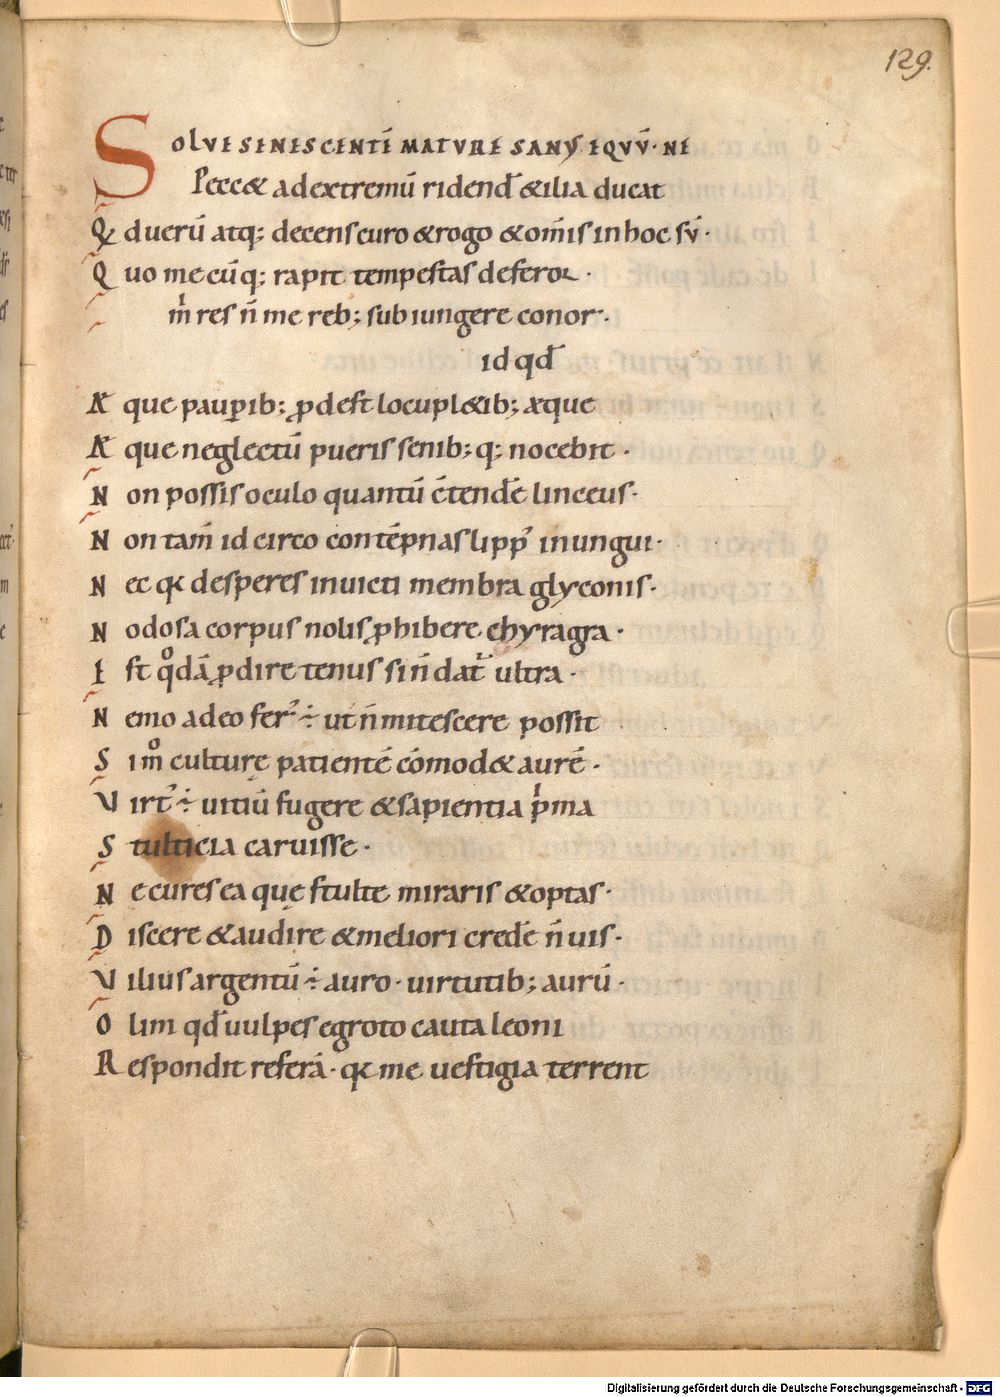 129.
SOLVE SENESCENTĒ MATVRE SANVS EQVV̄· NE
Peccet ad extremū ridend̄ & ilia ducat
Qd uerū atq; decens curo & rogo & om̄is in hoc sū·
Quo me cūq; rapit tempestas deferor·
m̄ res n̄ me reb; subiungere conor·
id qd̄
Aeque pauꝑib; ꝓdest locupl&ib; aeque
Aeque neglectū pueris senib; q; nocebit·
Non possis oculo quantū c̄tende linceus·
Non tam̄ idcirco contēpnas lipp' inungui·
Nec qa desperes inuicti membra glyconis·
Nodosa corpus nolis ꝓhibere chyragra·
Est qodā ꝓdire tenus si n̄ dat' ultra·
Nemo adeo fer' ÷ ut n̄ mitescere possit
Si mo culture patientē cōmod& aurē·
Virt' ÷ uitiū fugere & sapientia pima
Stulticia caruisse·
Ne cures ea que stulte miraris & optas·
Discere & audire & meliori crede n̄ uis·
Vilius argentū ÷ auro· uirtutib; aurū·
Olim qd̄ uulpes egroto cauta leoni
Respondit referā· qa me uestigia terrent
Digitalisierung gefördert durch die Deutsche Forschungsgemeinschaft - DFG